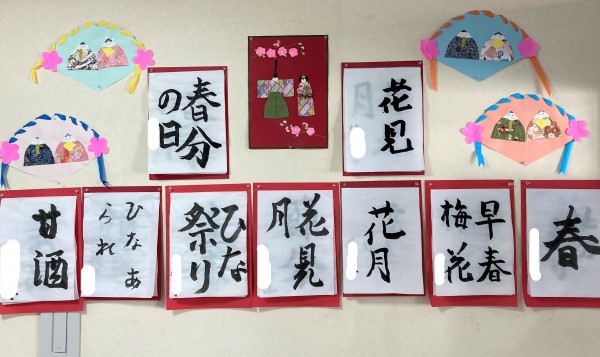 春分
の日
花見
甘酒
ひなあ
られ
ひな
祭り
花見
月
花月
早春
梅花
春